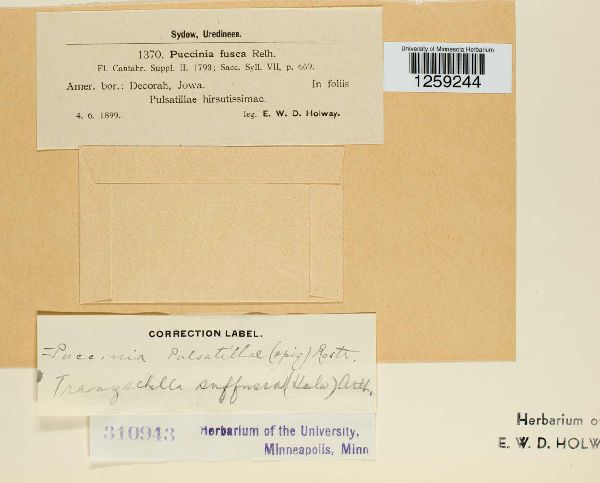 Sydow, Uredineen.
1370. Puccinia fusca Relh.
Fl. Cantabr. Suppl. II. 1793; Sacc. Syll. VII, p. 669.
Amer. bor.: Decorah, Jowa. In foliis
Pulsatillae hirsutissimae.
4. 6. 1899. leg. E. W. D. Holway.
University of Minnesota Herbarium
1259244
CORRECTION LABEL.
=Puccinia Pulsatillae (opiz) Rostr.
Tranzschella suffusca (Holw) Arth.
310943 Herbarium of the University,
Minneapolis, Minn
Herbarium o
E. W. D. HOLW